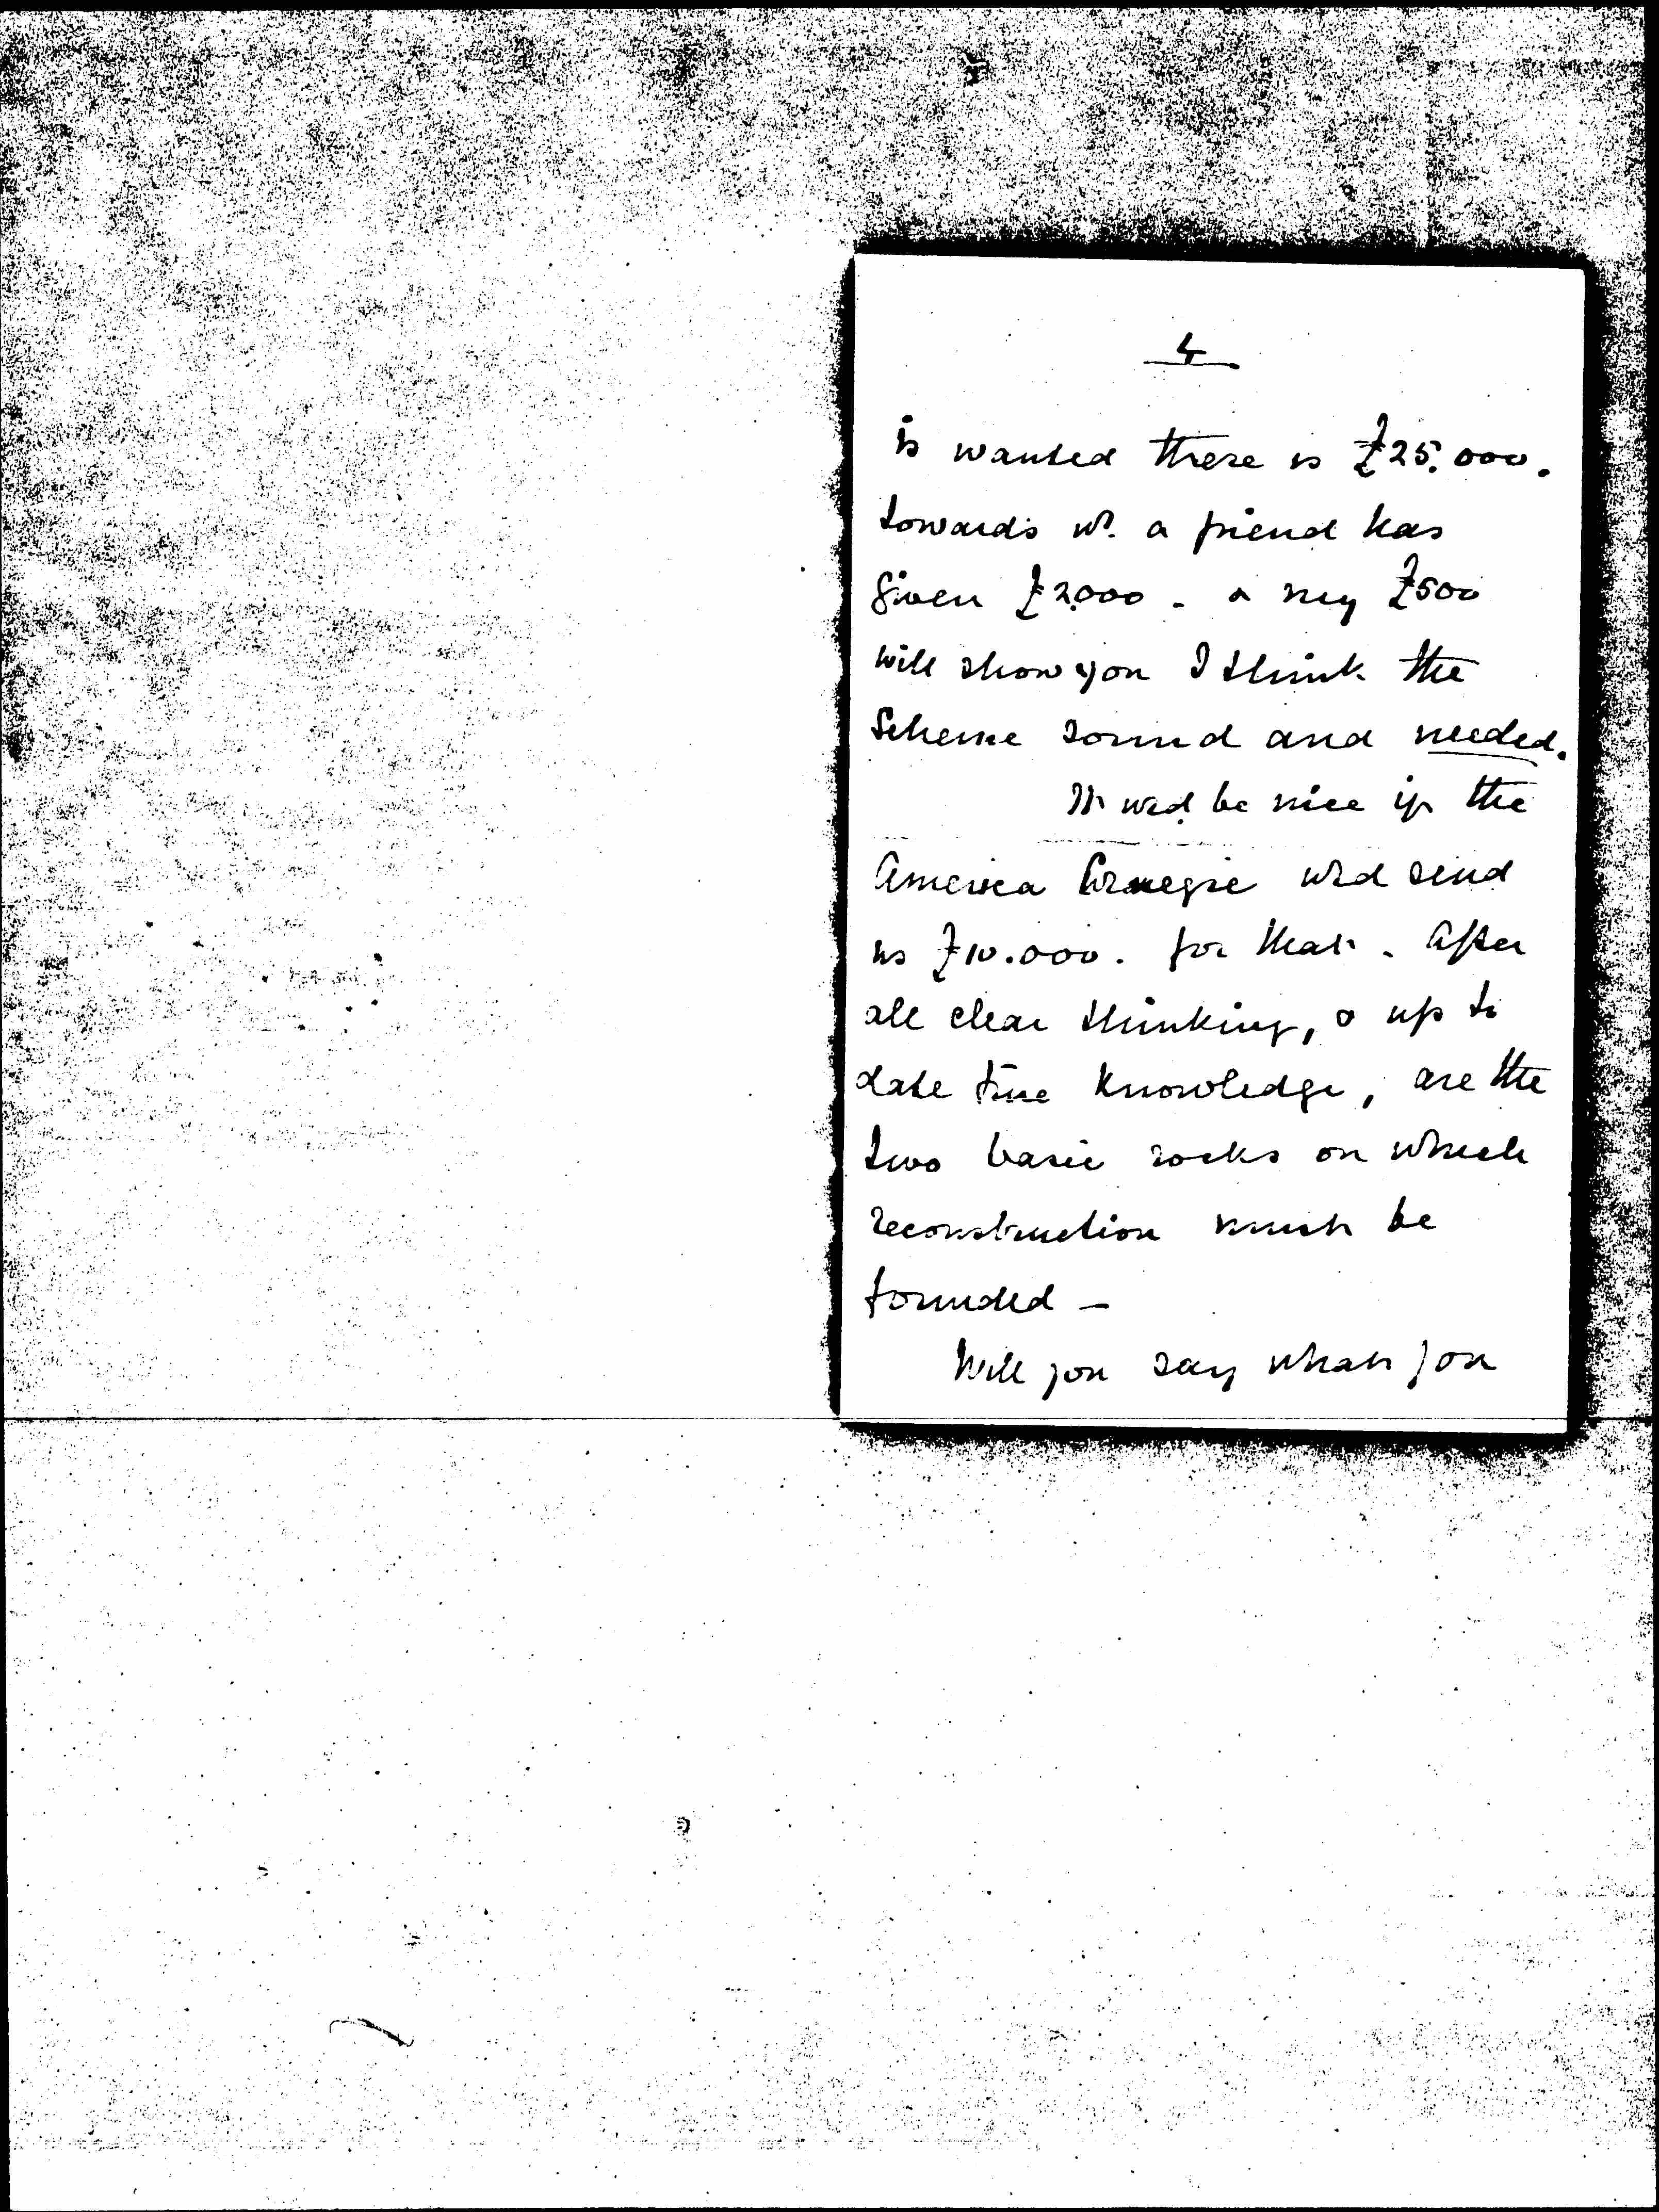 4
is wanted there is £25.000.
towards wh. a friend has
given £2000 - & my £500
will show you I think the
Scheme sound and needed.
It wd be nice if the
America Carnegie wld send
us £10.000. for that. After
all clear thinking, & up to
date true knowledge, are the
two basic rocks on which
reconstruction must be
founded -
Will you say what you